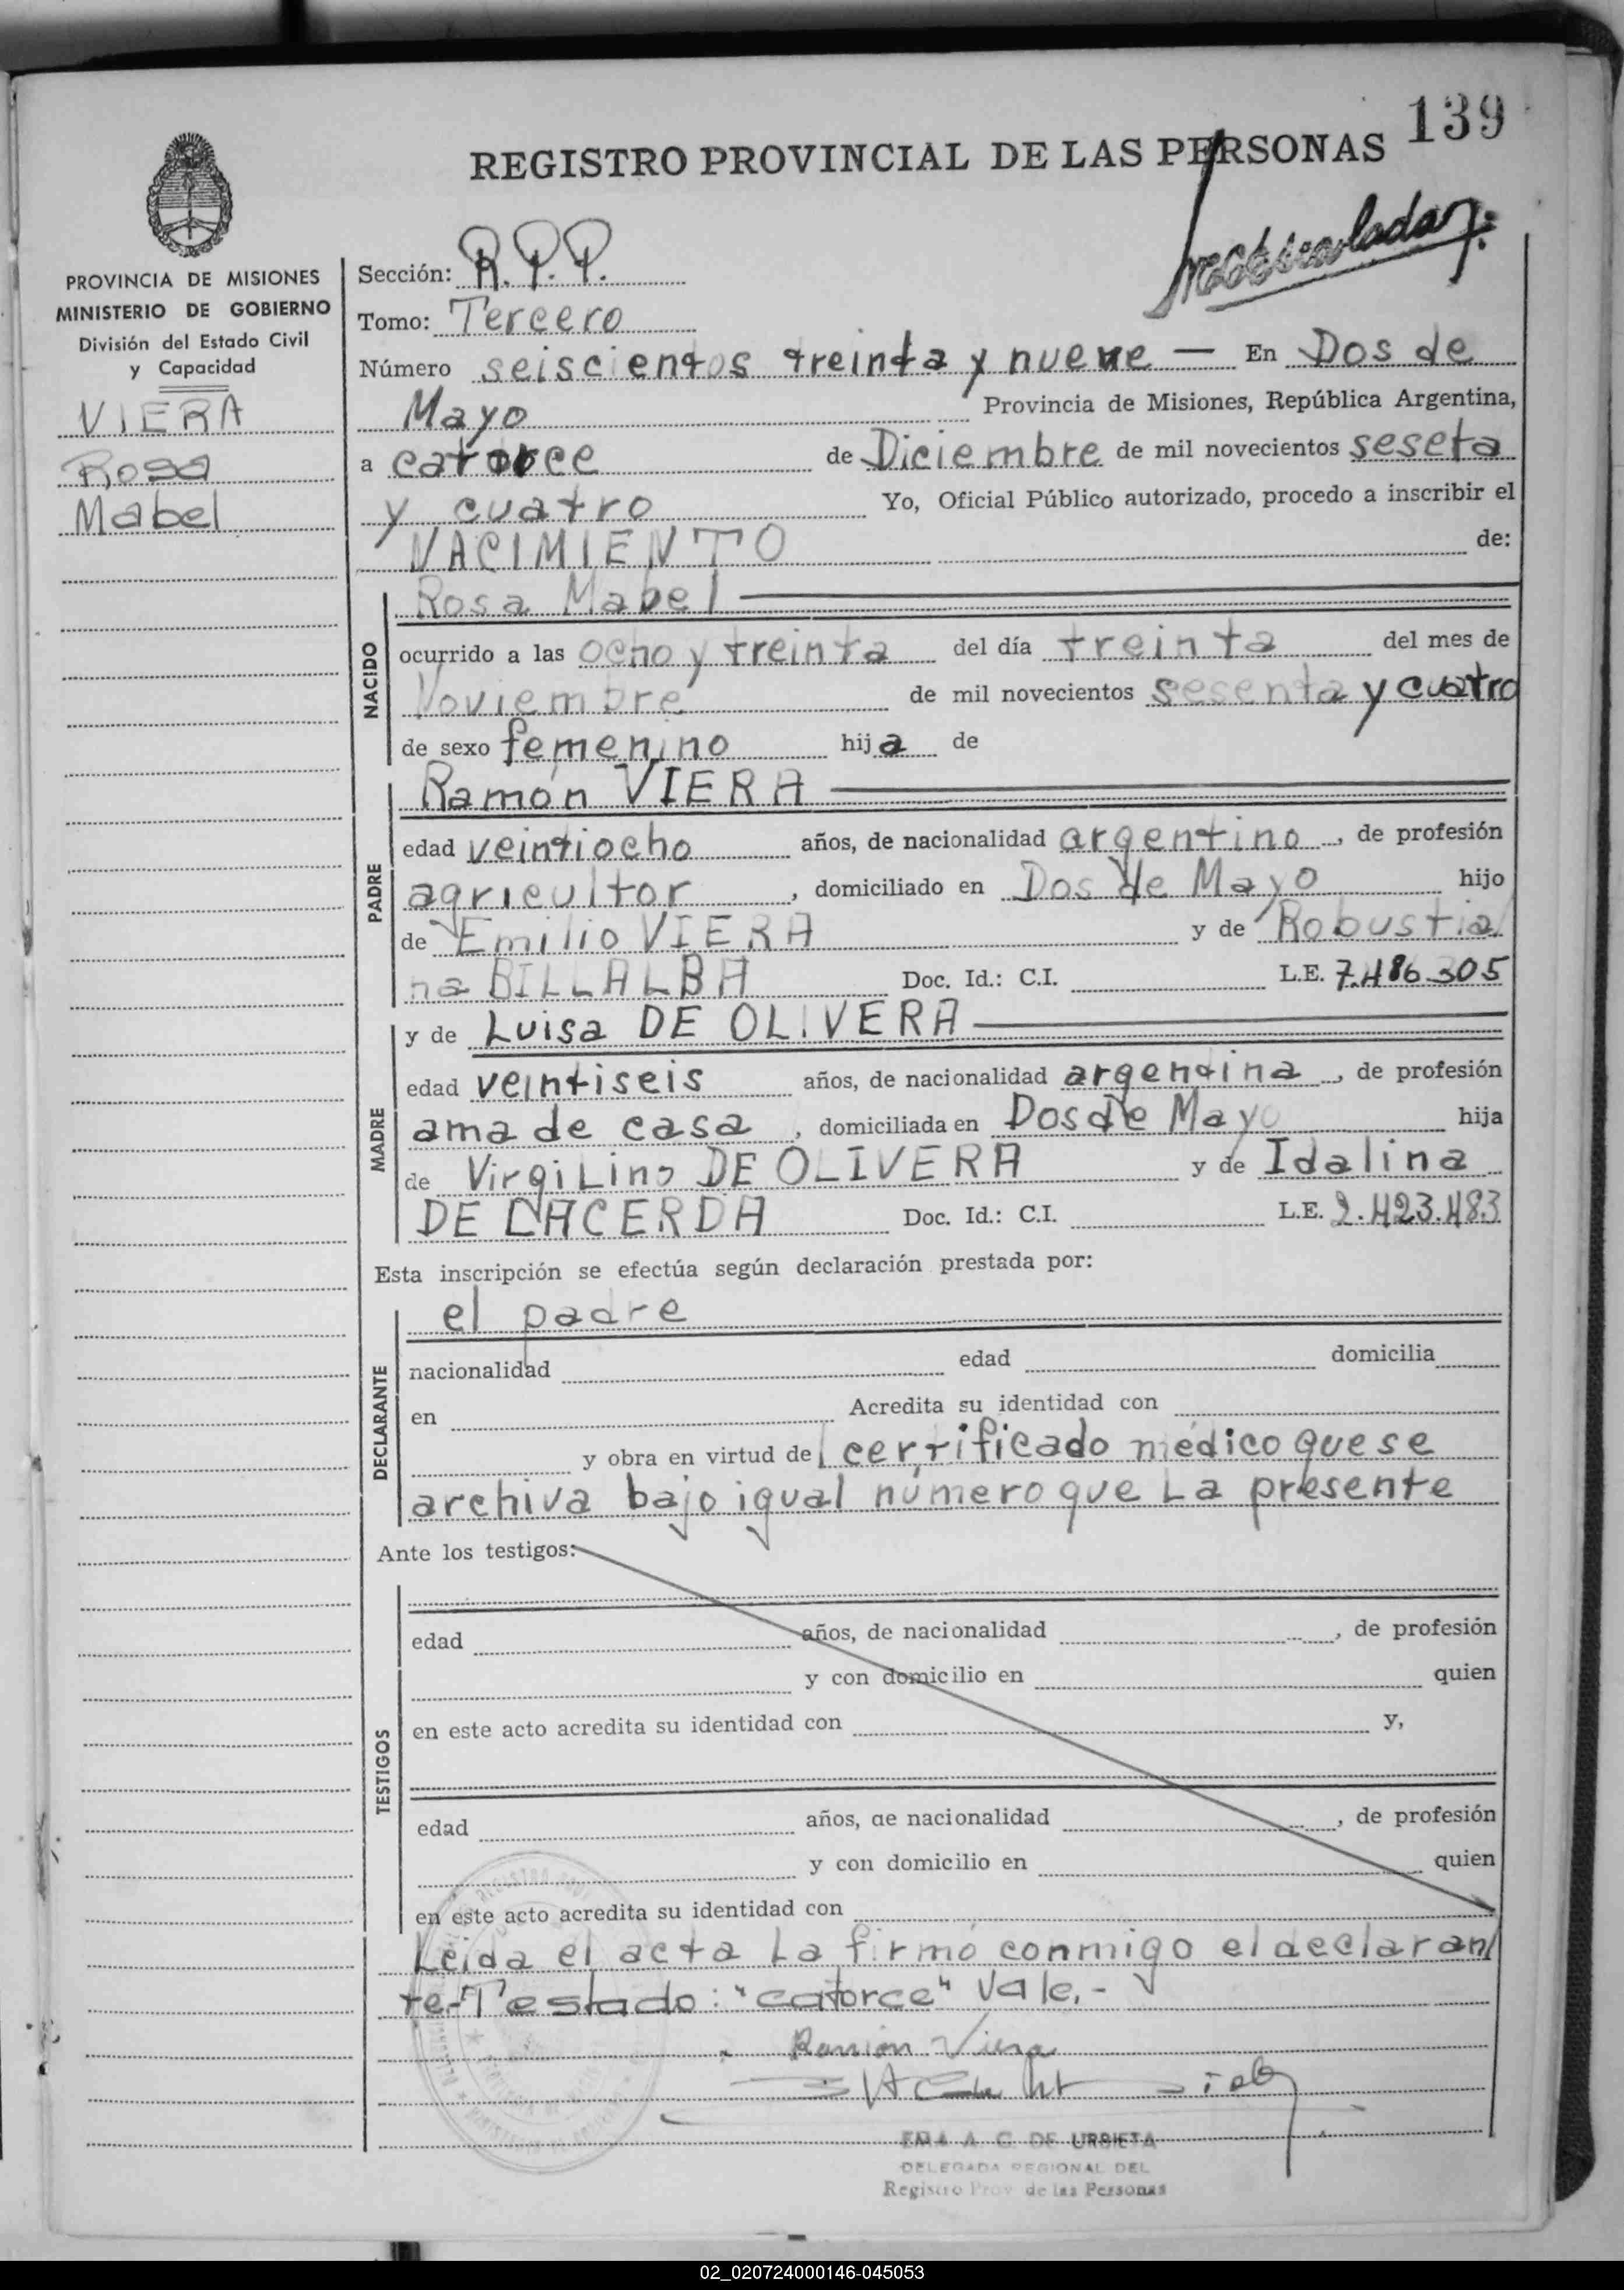 139
REGISTRO PROVINCIAL DE LAS PERSONAS
PROVINCIA DE MISIONES
MINISTERIO DE GOBIERNO
División del Estado Civil
y Capacidad
VIERA
Rosa
Mabel
Sección: R.P.P.
Tomo: Tercero
Número seiscientos treinta y nueve — En Dos de
Mayo Provincia de Misiones, República Argentina,
a catorce de Diciembre de mil novecientos seseta
y cuatro Yo, Oficial Público autorizado, procedo a inscribir el
NACIMIENTO de:
NACIDO
Rosa Mabel
ocurrido a las ocho y treinta del día treinta del mes de
Noviembre de mil novecientos sesenta y cuatro
de sexo femenino hija de
PADRE
Ramón VIERA
edad veintiocho años, de nacionalidad argentino, de profesión
agricultor, domiciliado en Dos de Mayo hijo
de Emilio VIERA y de Robustia
na BILLALBA Doc. Id.: C.I. L.E. 7.486.305
MADRE
y de Luisa DE OLIVERA
edad veintiseis años, de nacionalidad argentina, de profesión
ama de casa, domiciliada en Dos de Mayo hija
de VirgiLino DE OLIVERA y de Idalina
DE LACERDA Doc. Id.: C.I. L.E. 2.423.483
Esta inscripción se efectúa según declaración prestada por:
DECLARANTE
el padre
nacionalidad edad domicilia
en Acredita su identidad con
y obra en virtud del certificado médico que se
archiva bajo igual número que La presente
Ante los testigos:
TESTIGOS
edad años, de nacionalidad , de profesión
y con domicilio en quien
en este acto acredita su identidad con y,
edad años, de nacionalidad , de profesión
y con domicilio en quien
en este acto acredita su identidad con
Leida el acta La firmó conmigo el declaran
te.-Testado: "catorce" Vale.-
Ramón Viera
EMA A. C. DE URBIETA
DELEGADA REGIONAL DEL
Registro Prov de las Personas
02_020724000146-045053